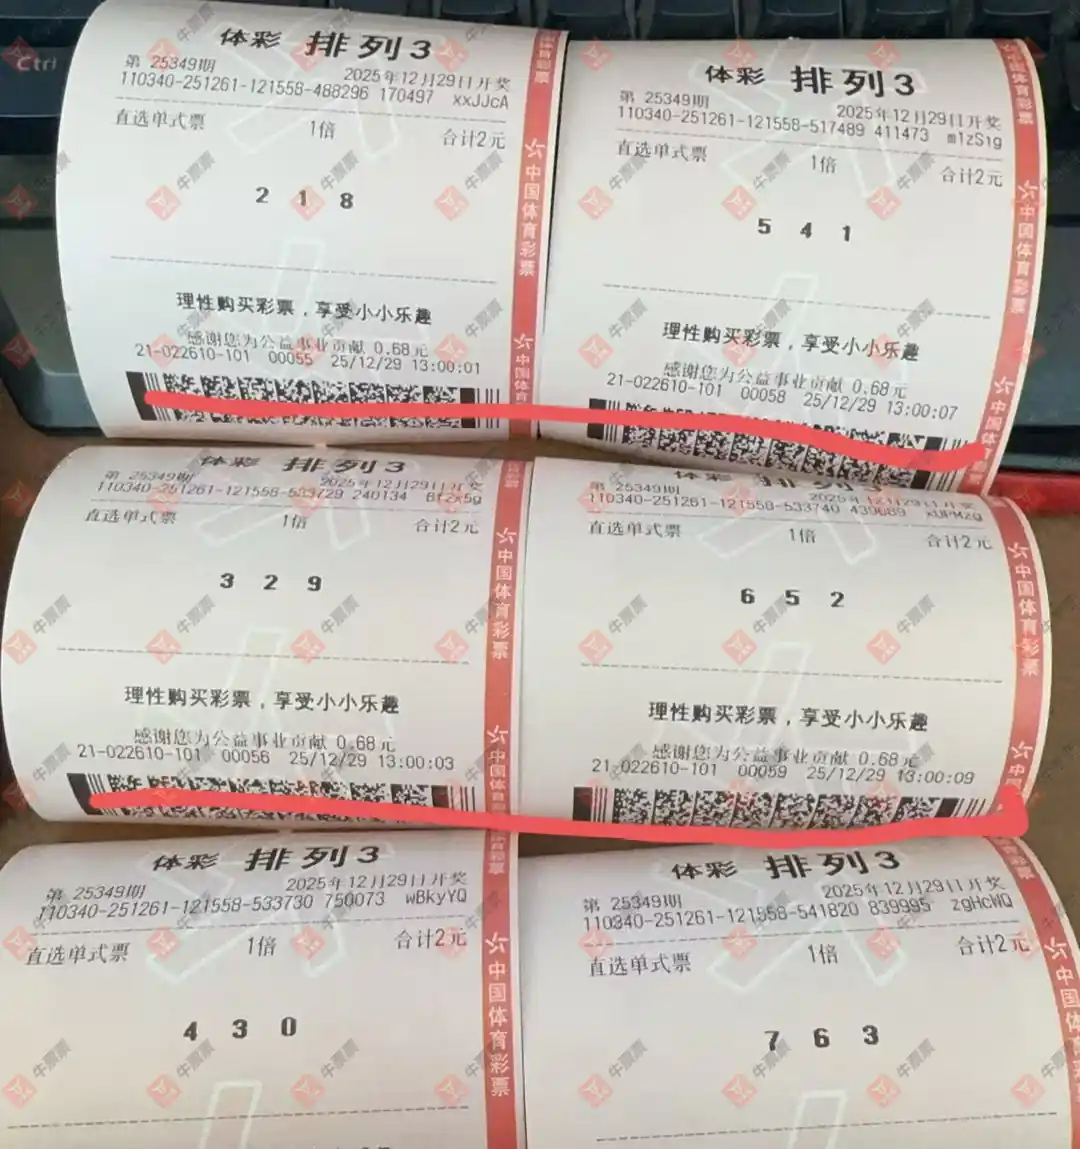 Ctrl
体彩 排列3
第 25349期 2025年12月29日开奖
110340-251261-121558-488296 170497 xxJJcA
直选单式票 1倍 合计2元
2 1 8
理性购买彩票，享受小小乐趣
感谢您为公益事业贡献 0.68元
21-022610-101 00055 25/12/29 13:00:01
中国体育彩票
体彩 排列3
第 25349期 2025年12月29日开奖
110340-251261-121558-517489 411473 m1zS1g
直选单式票 1倍 合计2元
5 4 1
理性购买彩票，享受小小乐趣
感谢您为公益事业贡献 0.68元
21-022610-101 00058 25/12/29 13:00:07
中国体育彩票
体彩 排列3
第 25349期 2025年12月29日开奖
110340-251261-121558-533729 240134 Bfzx5g
直选单式票 1倍 合计2元
3 2 9
理性购买彩票，享受小小乐趣
感谢您为公益事业贡献 0.68元
21-022610-101 00056 25/12/29 13:00:03
中国体育彩票
体彩 排列
第 25349期 2025年12月29日开奖
110340-251261-121558-533740 439689
直选单式票 1倍 合计2元
6 5 2
理性购买彩票，享受小小乐趣
感谢您为公益事业贡献 0.68元
21-022610-101 00059 25/12/29 13:00:09
中国体育彩票
体彩 排列3
第 25349期 2025年12月29日开奖
110340-251261-121558-533730 750073 wBkyYQ
直选单式票 1倍 合计2元
4 3 0
中国体育彩票
体彩 排列3
第 25349期 2025年12月29日开奖
110340-251261-121558-541820 839995 zgHcWQ
直选单式票 1倍 合计2元
7 6 3
中国体育
牛票票